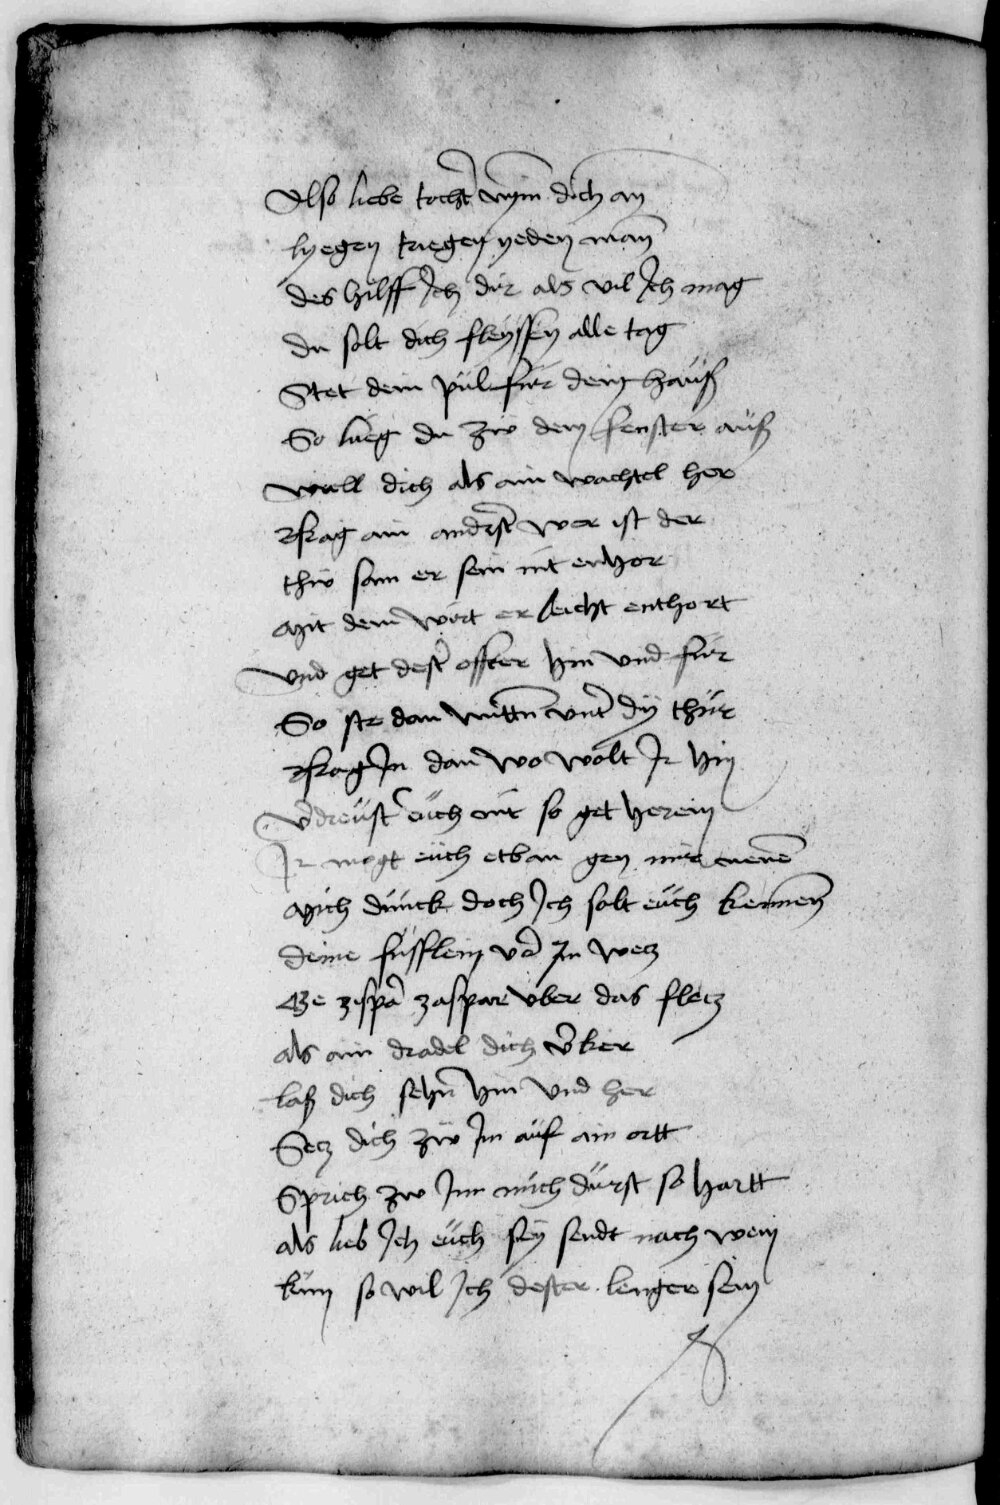 Also liebe tocht' nym dich an
lyegen triegen yeden man
des hilff Ich dir als vil Ich mag
du solt dich fleyssen alle tag
Stet dein pul für dein hauß
So lueg du zw dem fenster auß
wall dich als ain wachtel her
Frag ain andrst wer ist der
thw sam er sein nit enhor
Mit dem wort er leicht enthort
Vnd get dest offter hin vnd für
So ste dan mittn vnt' dy thür
Frag In dan wo wolt Ir hin
V'dreust euch nit so get herein
Ir mogt euch etban gen mir nenen
Mich dunck doch Ich solt euch kennen
deine füsslein vor Im wetz
Ge zispa' zaspar vber das fletz
als ain dradel dich v'ker
laß dich sehn hin vnd her
Setz dich zw Im auf ain ortt
Sprich zw Im mich durst so hartt
als lieb Ich euch sey sendt nach wein
kum so wil Ich dester lenger sein